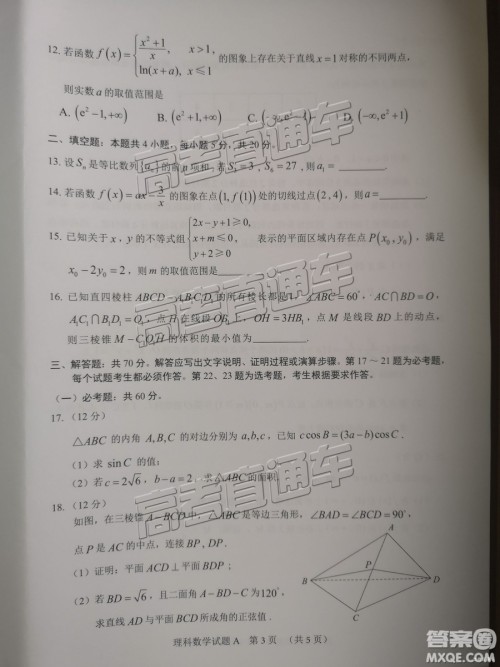 12. 若函数 f(x)={ (x²+1)/x, x>1, ln(x+a), x≤1 的图象上存在关于直线 x=1 对称的不同两点,
则实数 a 的取值范围是
A. (e²-1,+∞) B. (e²+1,+∞) C. (-∞,e²-1) D. (-∞,e²+1)
二、填空题：本题共4小题，每小题5分，共20分。
13. 设 Sₙ 是等比数列{aₙ}的前 n 项和，若 S₃=3, S₆=27，则 a₁=
14. 若函数 f(x)=ax-3/x 的图象在点(1, f(1))处的切线过点(2,4)，则 a=
15. 已知关于 x, y 的不等式组{ 2x-y+1≥0, x+m≤0, y+2≥0 表示的平面区域内存在点 P(x₀,y₀)，满足
x₀-2y₀=2，则 m 的取值范围是
16. 已知直四棱柱 ABCD-A₁B₁C₁D₁ 的所有棱长都是1，∠ABC=60°，AC∩BD=O，
A₁C₁∩B₁D₁=O₁，点 H 在线段 OB₁ 上，OH=3HB₁，点 M 是线段 BD 上的动点，
则三棱锥 M-C₁O₁H 的体积的最小值为
三、解答题：共70分。解答应写出文字说明、证明过程或演算步骤。第17～21题为必考题，
每个试题考生都必须作答。第22、23题为选考题，考生根据要求作答。
（一）必考题：共60分。
17.（12分）
△ABC 的内角 A,B,C 的对边分别为 a,b,c，已知 c cosB=(3a-b)cosC.
（1）求 sinC 的值；
（2）若 c=2√6，b-a=2，求△ABC 的面积.
18.（12分）
如图，在三棱锥 A-BCD 中，△ABC 是等边三角形，∠BAD=∠BCD=90°，
点 P 是 AC 的中点，连接 BP, DP.
（1）证明：平面 ACD⊥平面 BDP；
（2）若 BD=√6，且二面角 A-BD-C 为120°，
求直线 AD 与平面 BCD 所成角的正弦值.
A
B
P
D
C
理科数学试题A 第3页 （共5页）
高考直通车
高考直通车
高考直通车
答案圈
MXQE.COM